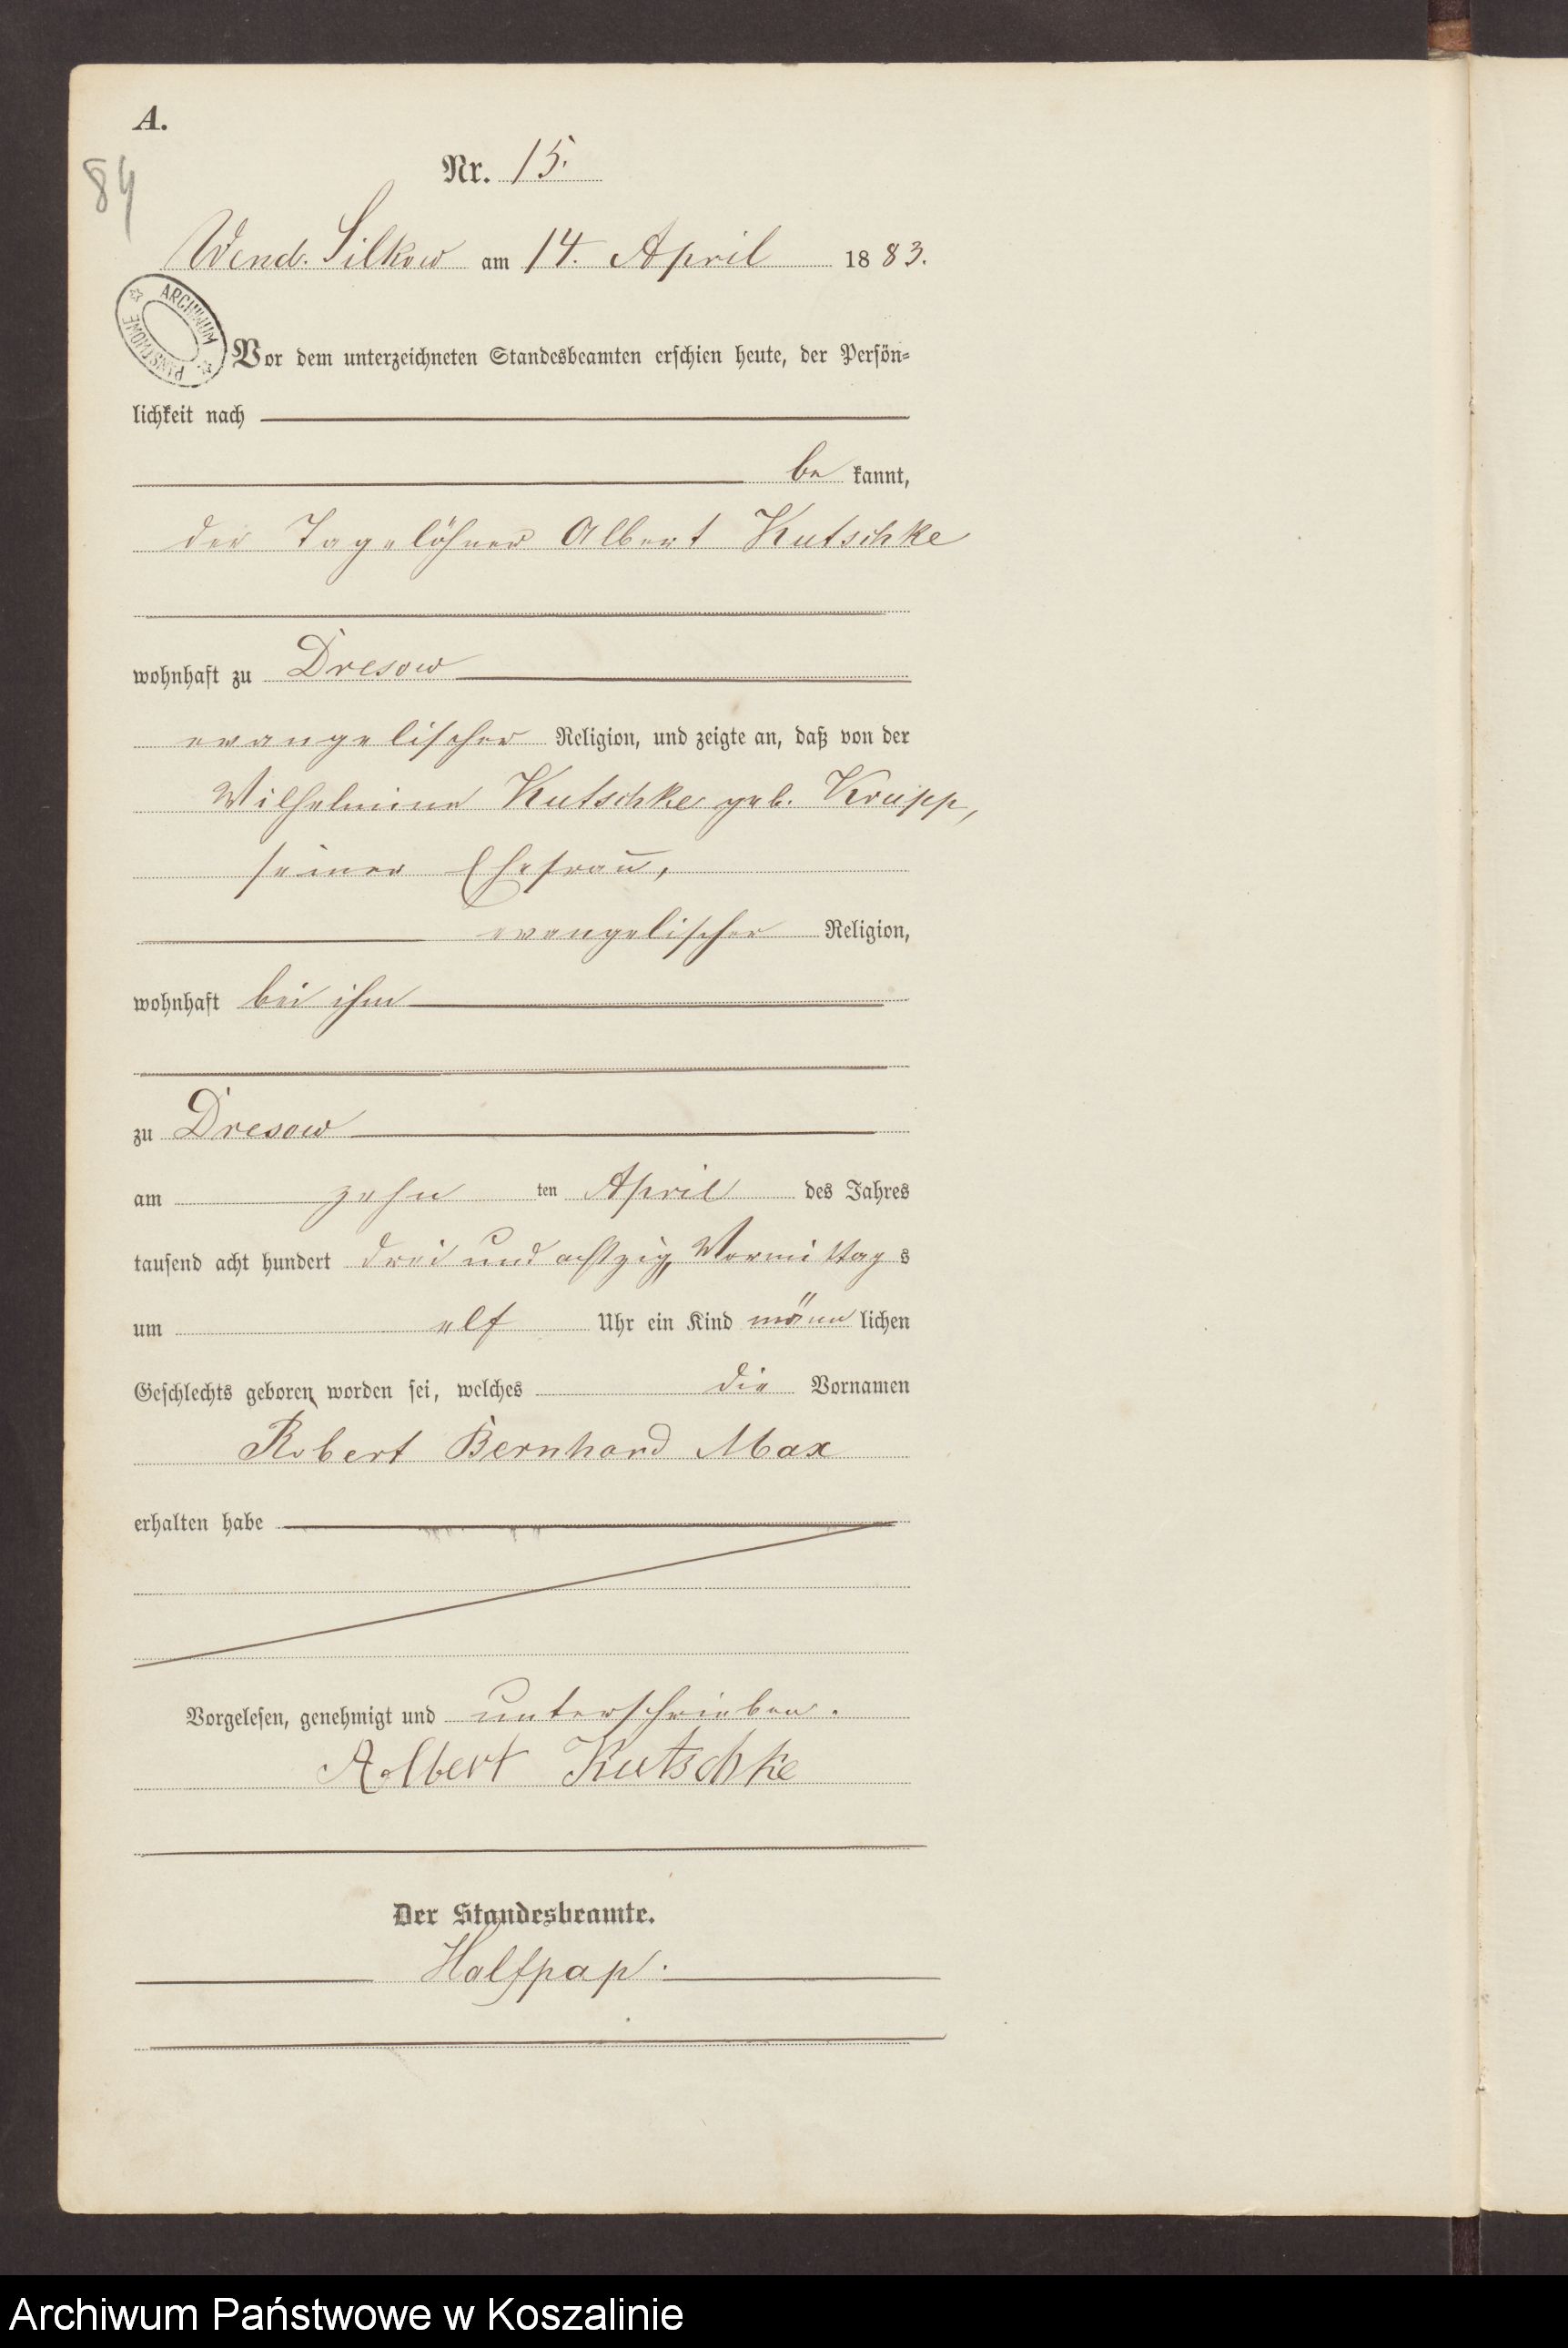 A.
84
Nr. 15.
Wend. Silkow am 14. April 1883.
ARCHIWUM PAŃSTWOWE
Vor dem unterzeichneten Standesbeamten erschien heute, der Persön=
lichkeit nach
be kannt,
der Tagelöhner Albert Kutschke
wohnhaft zu Dresow
evangelischer Religion, und zeigte an, daß von der
Wilhelmine Kutschke geb. Krupp,
seiner Ehefrau,
evangelischer Religion,
wohnhaft bei ihm
zu Dresow
am zehn ten April des Jahres
tausend acht hundert drei und achtzig, Vormittags
um elf Uhr ein Kind männlichen
Geschlechts geboren worden sei, welches die Vornamen
Robert Bernhard Max
erhalten habe
Vorgelesen, genehmigt und unterschrieben.
Albert Kutschke
Der Standesbeamte.
Halfpap.
Archiwum Państwowe w Koszalinie